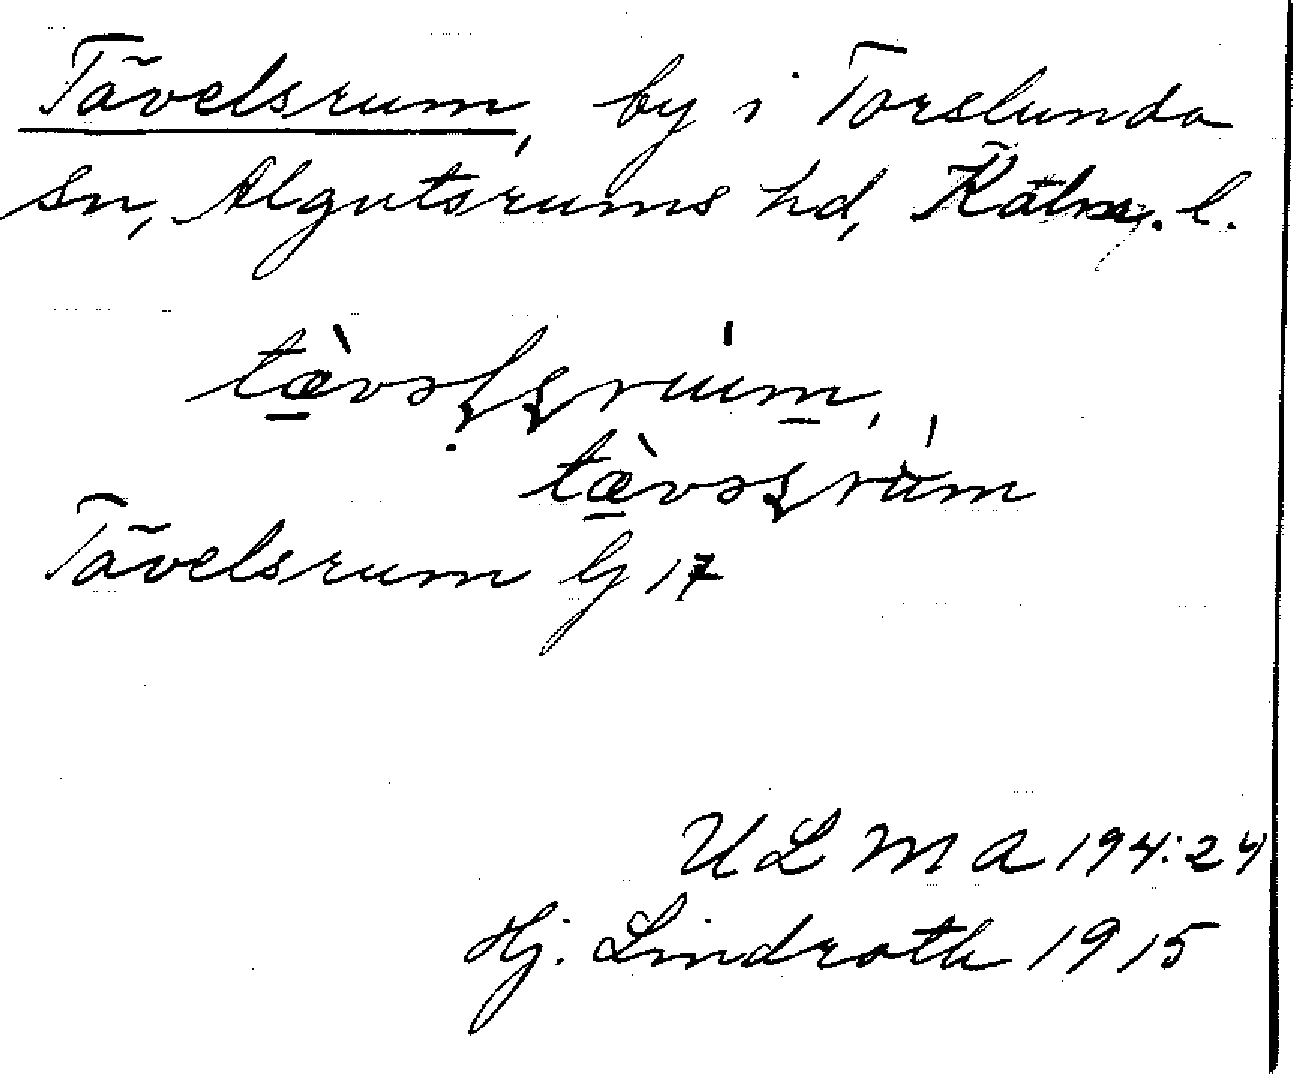 Tävelsrum, by i Torslunda
sn, Algutsrums hd, Kalm. l.
tæ̀vəlsrum,
tæ̀vəsrum
Tävelsrum G 17
ULMA 194:24
Hj. Lindroth 1915